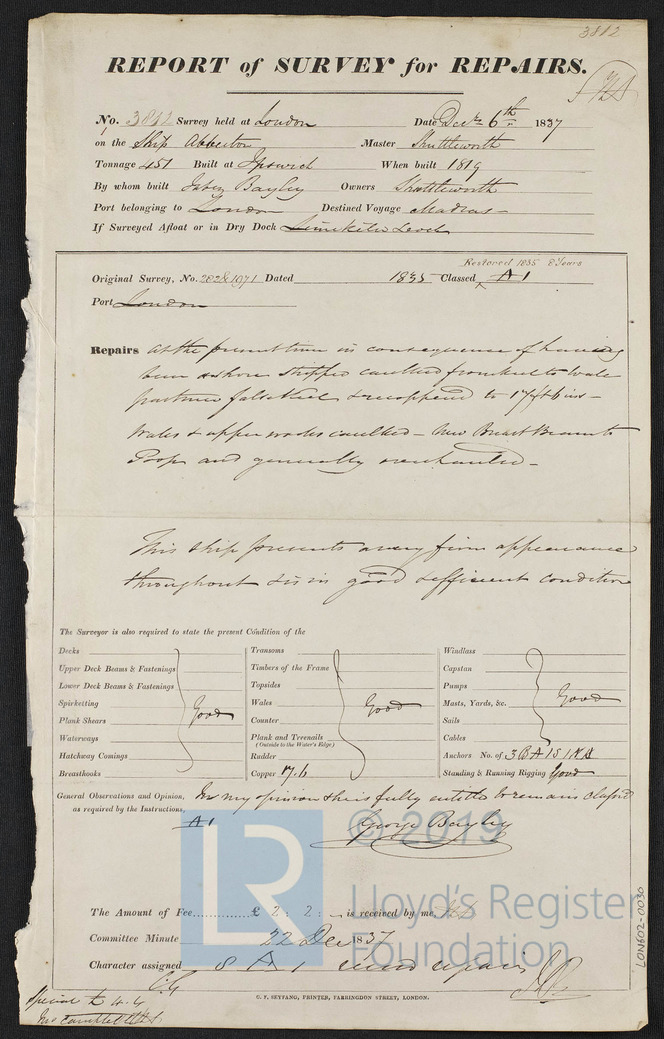 3812
REPORT of SURVEY for REPAIRS.
No. 3812 Survey held at London Date Decr 6th 1837
on the Ship Abberton Master Shuttleworth
Tonnage 451 Built at Ipswich When built 1819
By whom built Jabez Bayley Owners Shuttleworth
Port belonging to London Destined Voyage Madras
If Surveyed Afloat or in Dry Dock Limekiln Dock
Restored 1835 8 Years
Original Survey, No. 282&1971 Dated 1835 Classed A1
Port London
Repairs At the present time in consequence of having
been ashore stripped caulked from keel to wale
part new false keel & recoppered to 17 ft 6 ins
Wales & upper works caulked - New Breast Beam to
Poop and generally overhauled -
This ship presents a very firm appearance
throughout & is in good & efficient condition
The Surveyor is also required to state the present Condition of the
Decks
Upper Deck Beams & Fastenings
Lower Deck Beams & Fastenings
Spirketting
Plank Shears
Waterways
Hatchway Comings
Breasthooks
Good
Transoms
Timbers of the Frame
Topsides
Wales
Counter
Plank and Treenails
(Outside to the Water's Edge)
Rudder
Copper 17.6
Good
Windlass
Capstan
Pumps
Masts, Yards, &c.
Sails
Cables
Good
Anchors No. of 3 BA 1S 1KA
Standing & Running Rigging Good
General Observations and Opinion, In my opinion this is fully entitled to remain classed
as required by the Instructions,
A1
George Bayley
© 2019
LR
Lloyd's Register
Foundation
The Amount of Fee............£ 2 : 2 : - is received by me,
Committee Minute 22 Dec 1837
Character assigned 8 A 1 repairs
C. F. SEYFANG, PRINTER, FARRINGDON STREET, LONDON.
Special to
LON602-0030